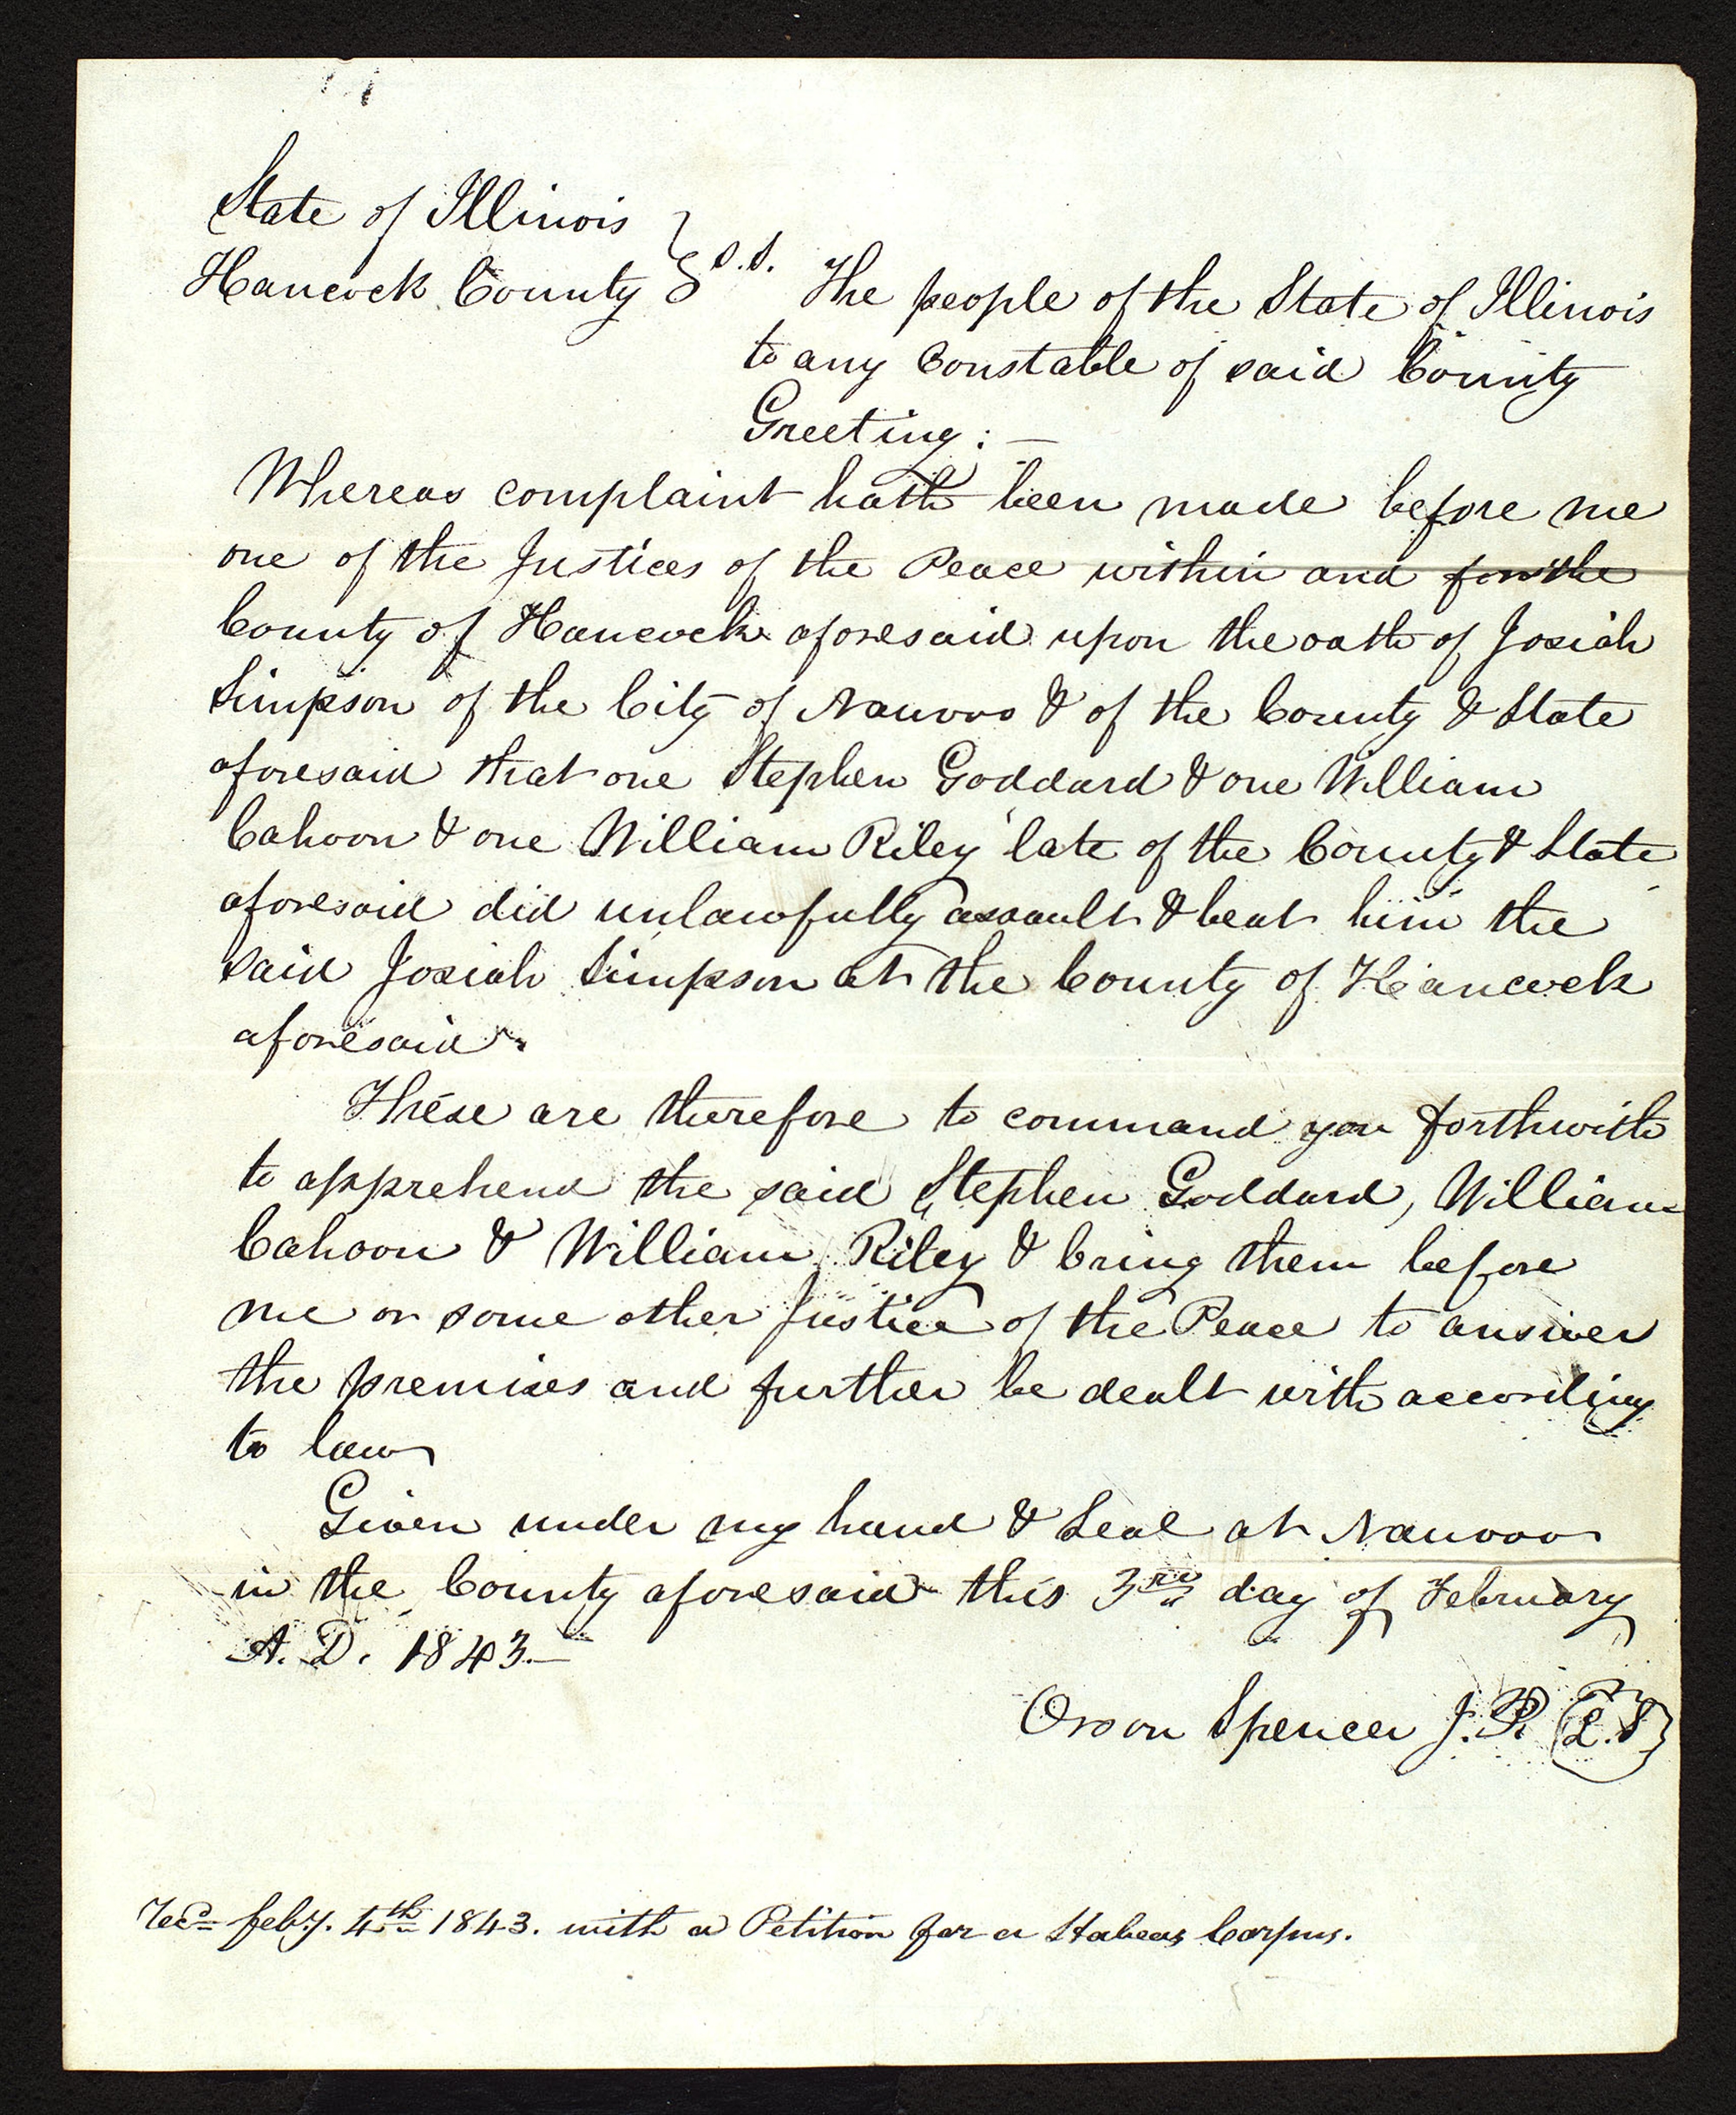 State of Illinois
Hancock County } S.S. The people of the State of Illinois
to any Constable of said County
Greeting: —
Whereas complaint hath been made before me
one of the Justices of the Peace within and for the
County of Hancock aforesaid upon the oath of Josiah
Simpson of the City of Nauvoo & of the County & State
aforesaid that one Stephen Goddard & one William
Cahoon & one William Riley late of the County & State
aforesaid did unlawfully assault & beat him the
said Josiah Simpson at the County of Hancock
aforesaid
These are therefore to command you forthwith
to apprehend the said Stephen Goddard, William
Cahoon & William Riley & bring them before
me or some other Justice of the Peace to answer
the premises and further be dealt with according
to law
Given under my hand & Seal at Nauvoo
in the County aforesaid this 3rd day of February
A. D. 1843.—
Orson Spencer J.P. {L.S}
Recd feby. 4th 1843. with a Petition for a Habeas Corpus.